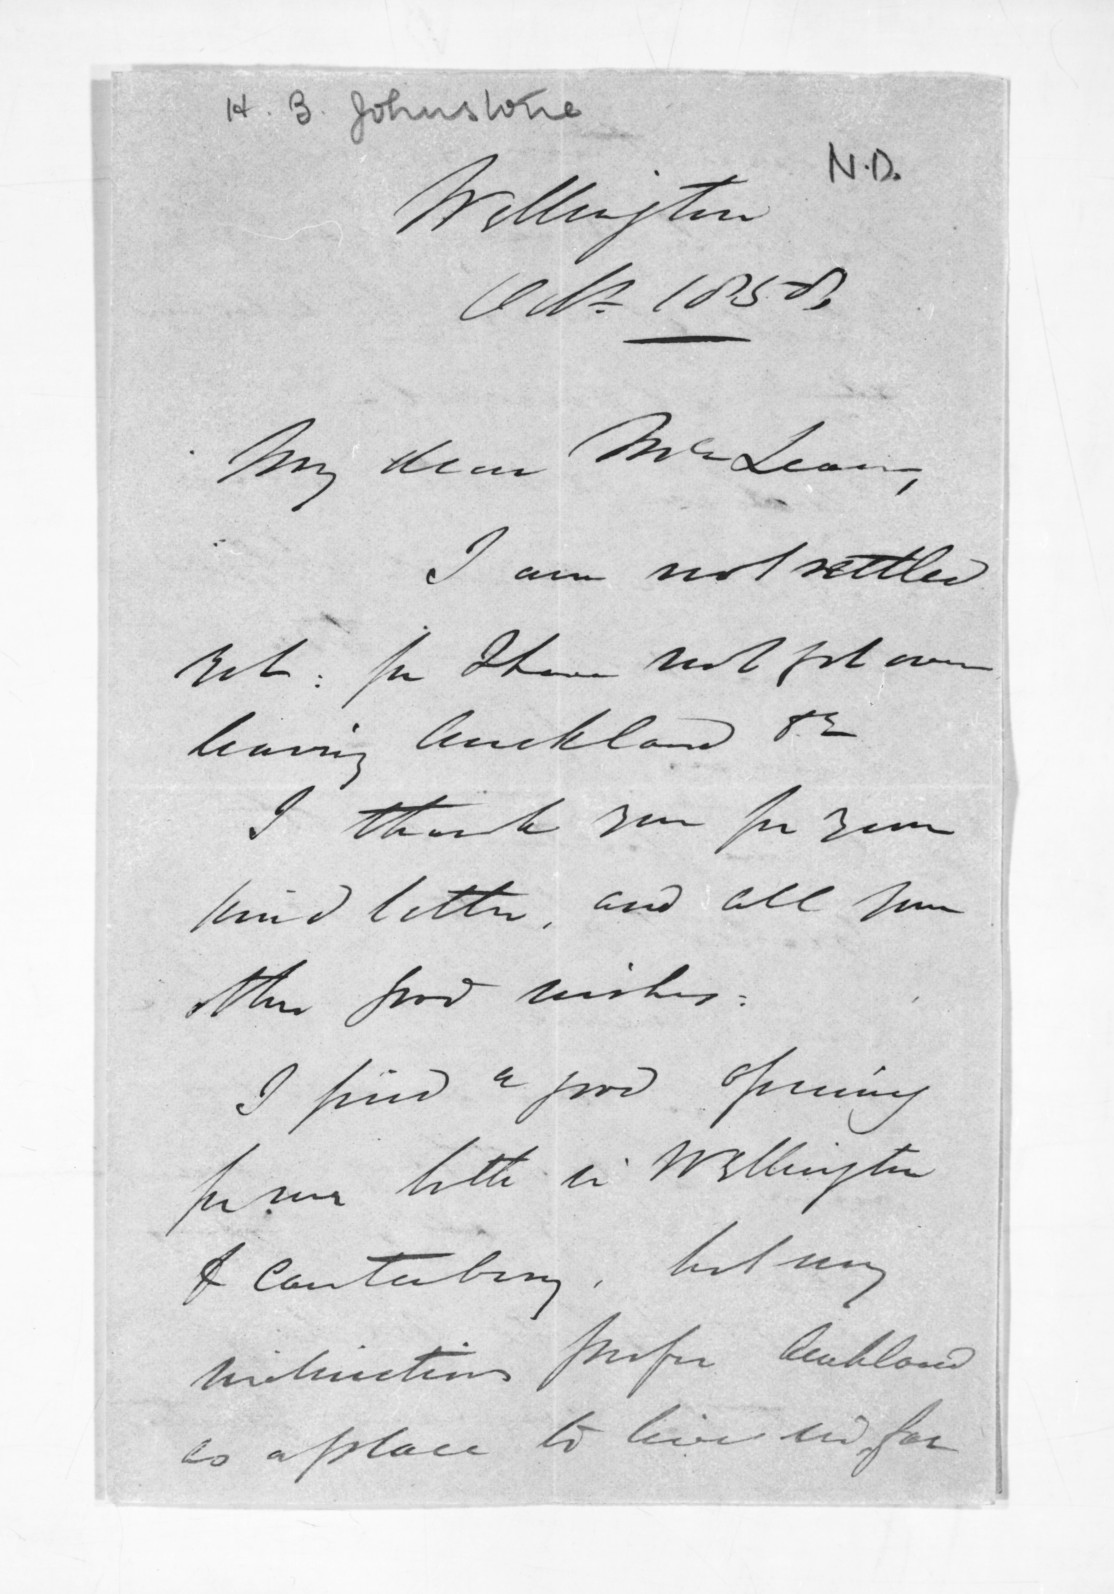 H. B. Johnstone
N.D.
Wellington
Octr. 1858,
My dear McLean,
I am not settled
yet: for I have not got over
leaving Auckland &c
I thank you for your
kind letter, and all your
other good wishes:
I find a good opening
for me both in Wellington
& Canterbury, but my
inclinations prefer Auckland
as a place to live in far